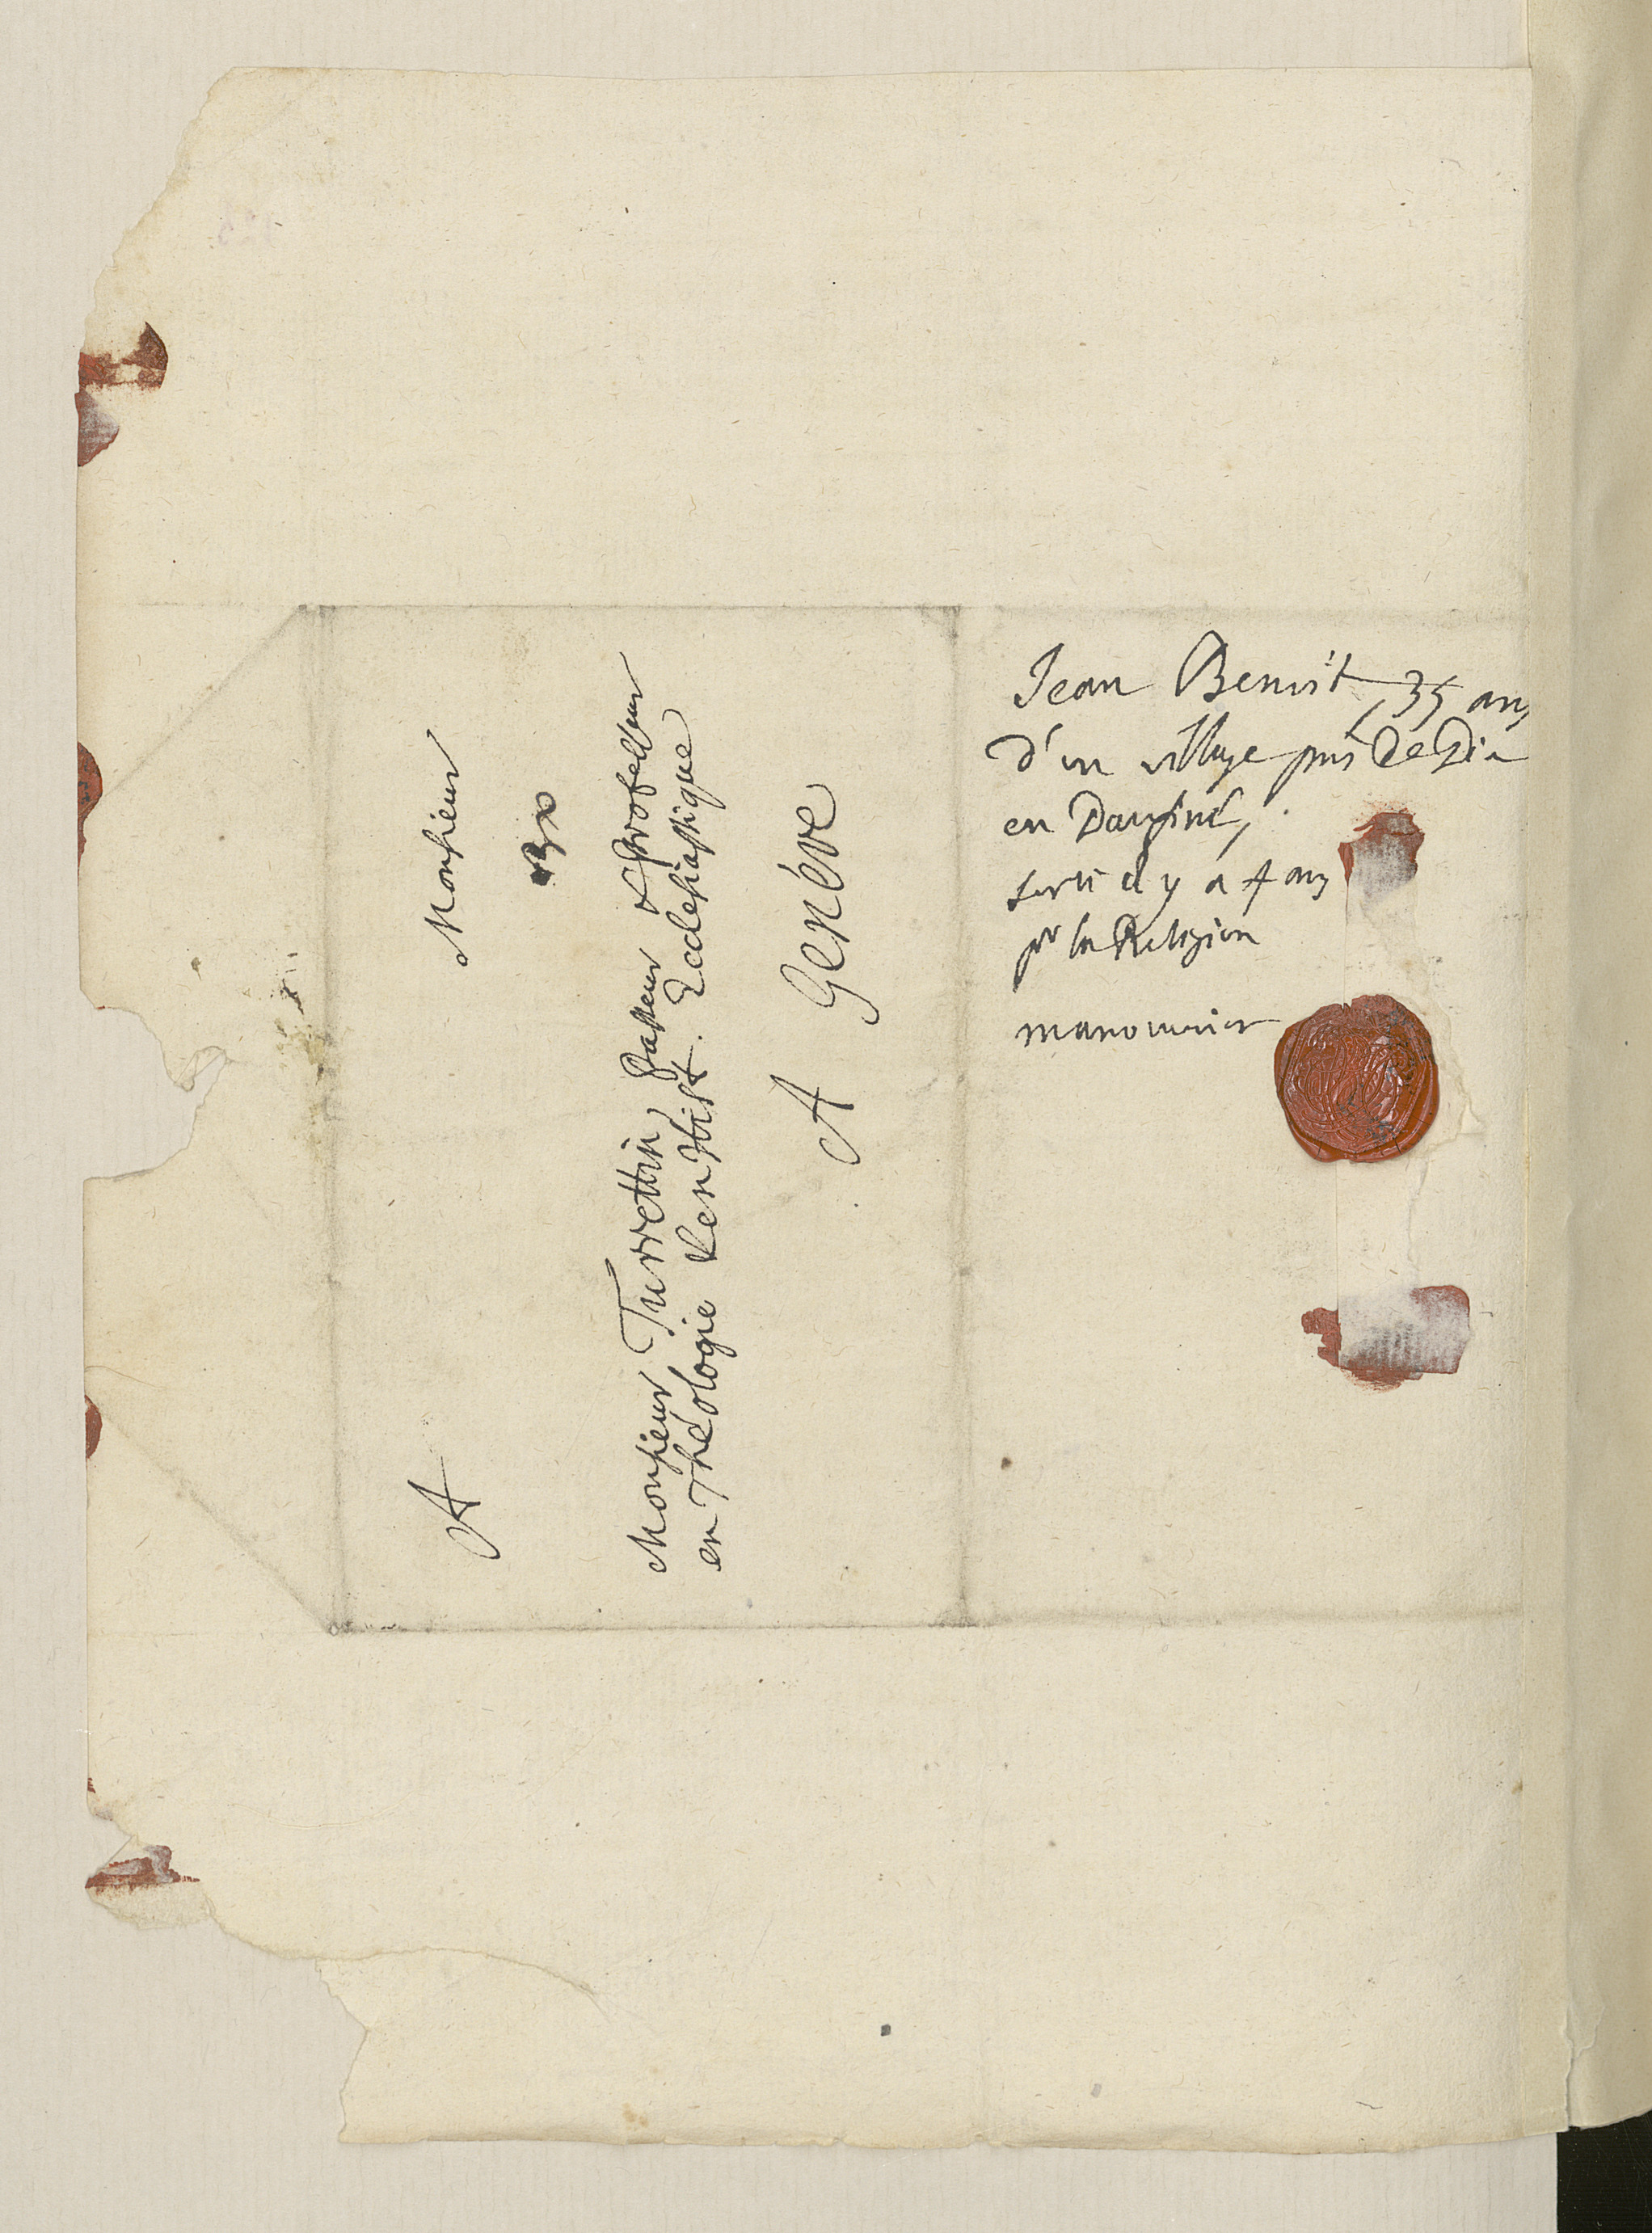 A Monsieur
Monsieur Turrettin Pasteur & Professeur
en Théologie & en Hist. Ecclesiastique
A Genéve
Jean Benoit, 35 ans
d'un village près de Die
en Daufiné,
sorti il y a 4 ans
pr la Religion
manouvrier